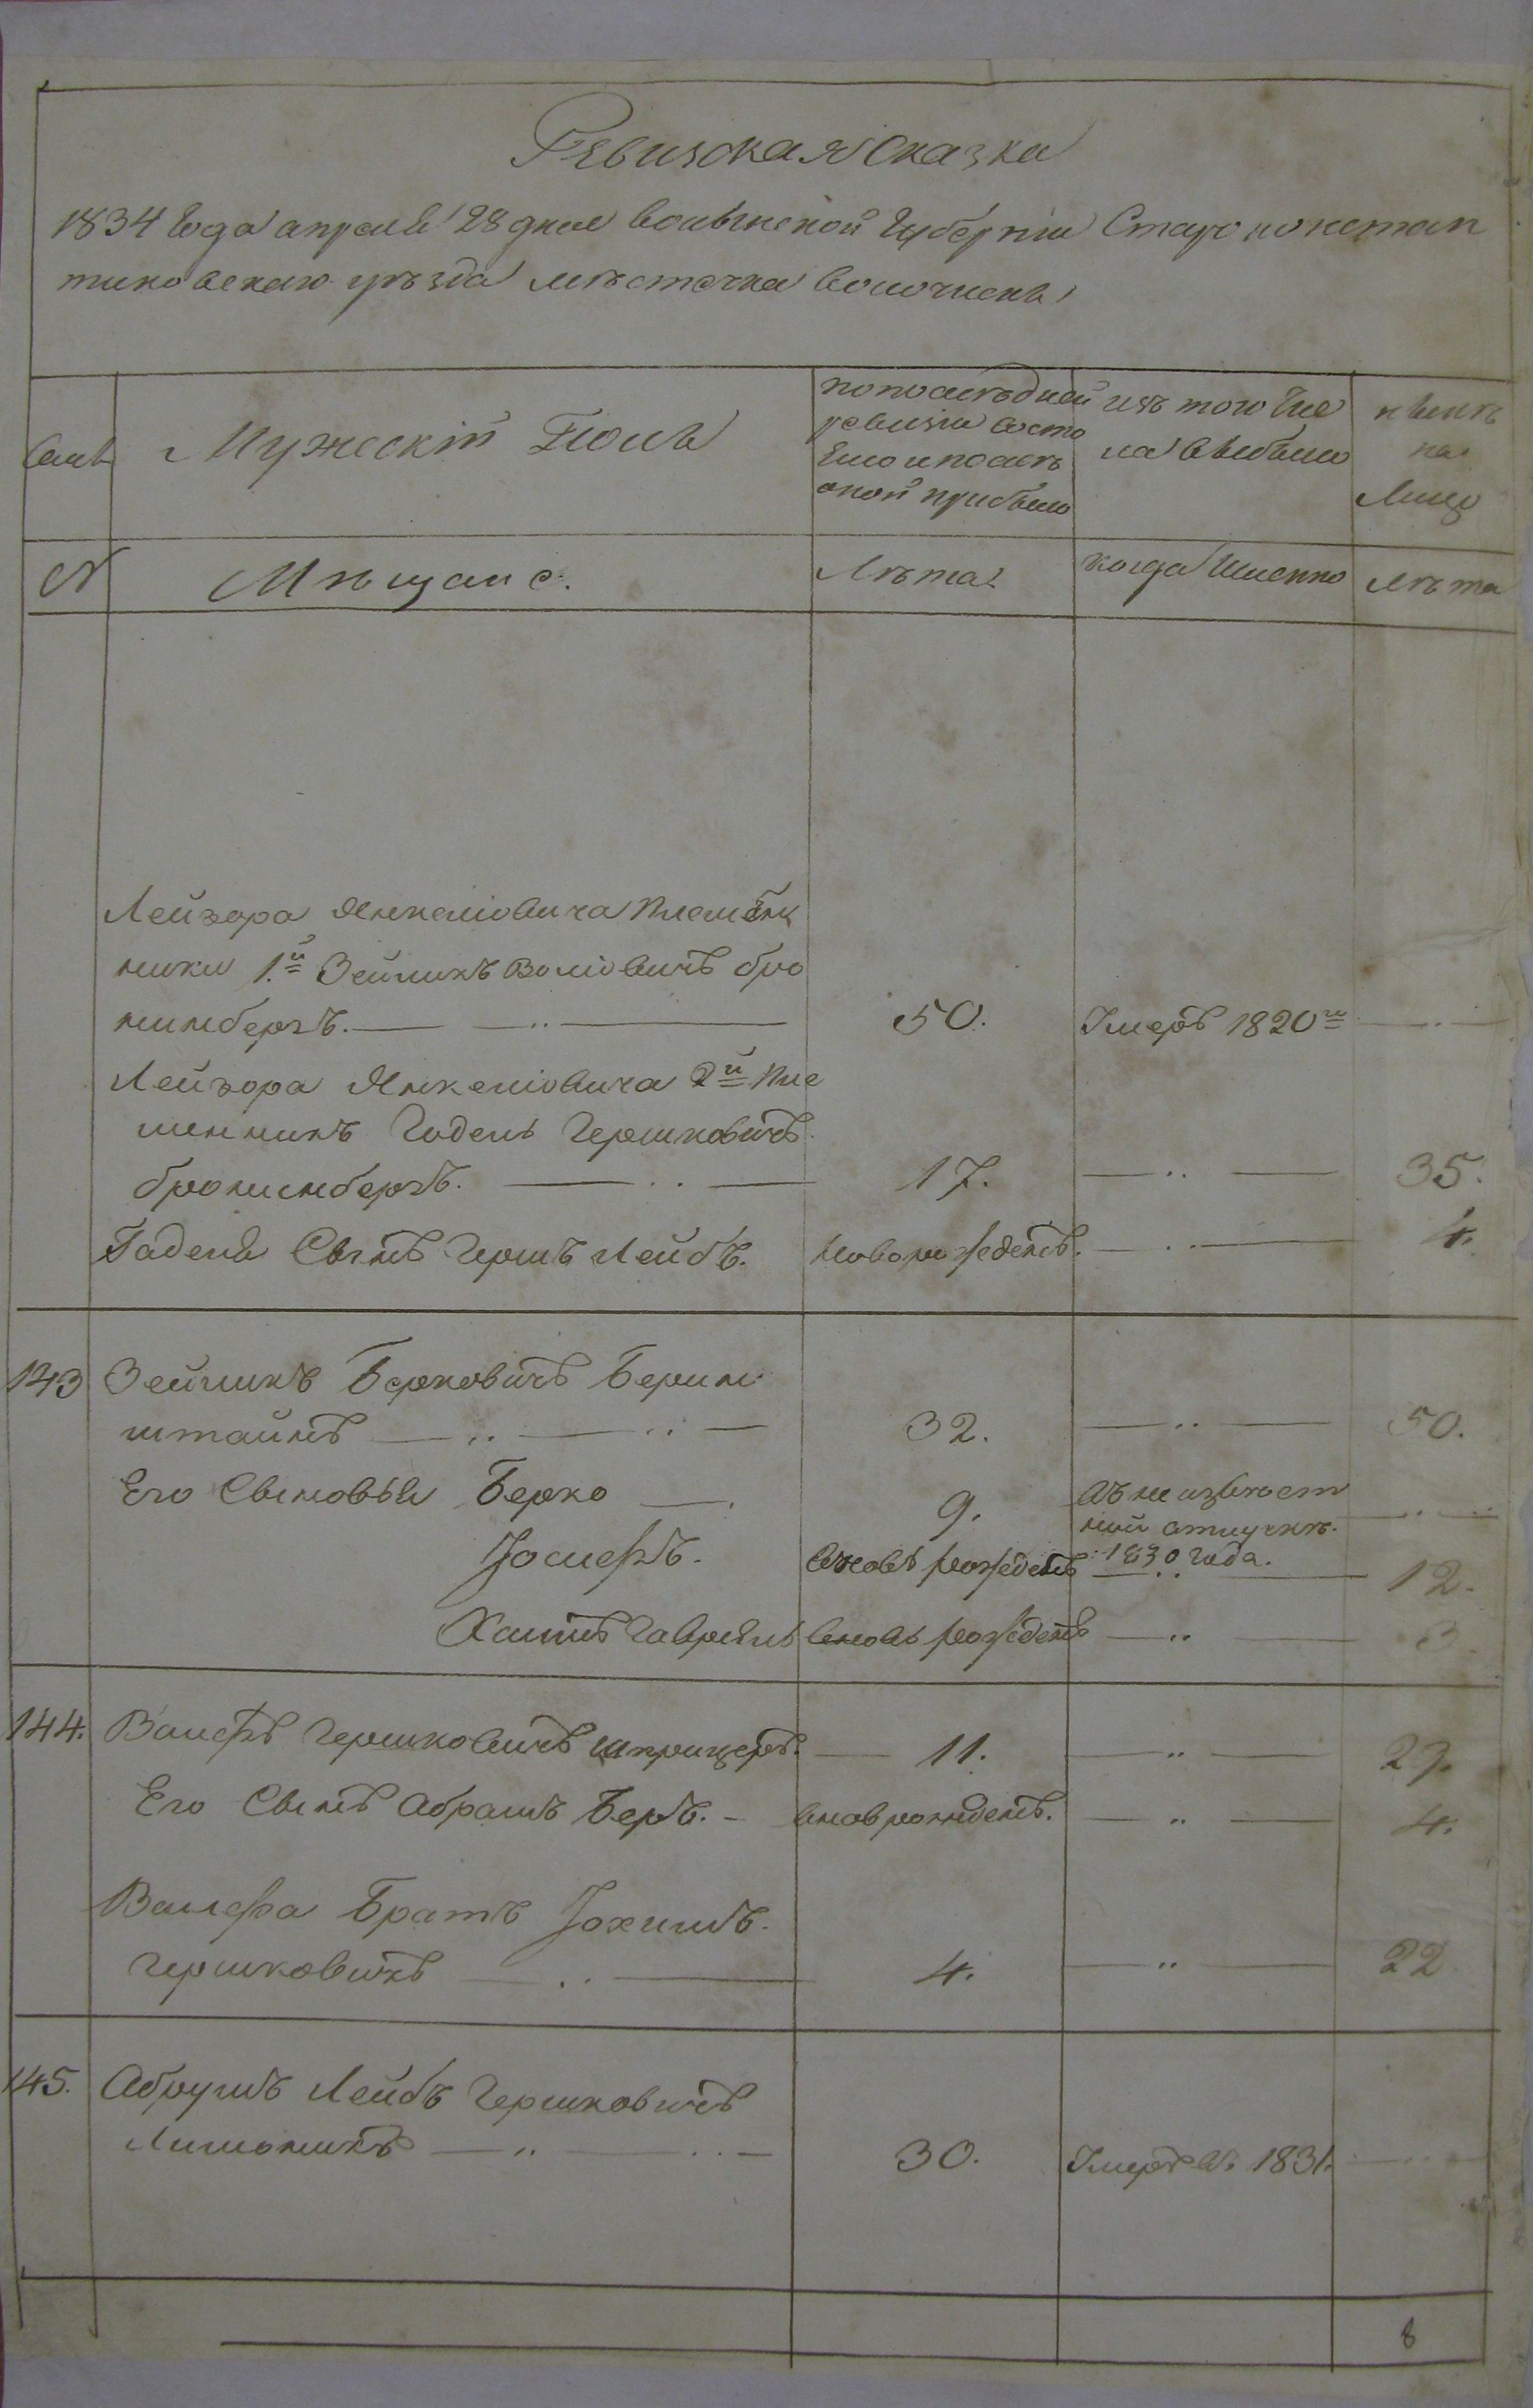 Ревизская Сказка
1834 года апреля 28 дня волынской Губернии Старо констан
тиновскаго уезда местечка волочиска
Семьи
Мужескій Полъ
по последней
ревизіи состо
яло и после
оной прибыло
изъ того Чис
ла выбыло
ныне
на
Лицо
№
Мещане.
Лета
когда Именно
лета
Лейзора Янкеліовича племен
ники 1.й Зейликъ Воліовичъ бро
нинберъ.
50.
Умеръ 1820го
Лейзора Янкеліовича 2й пле
менникъ Гадель Гершковичъ
бронинберъ.
17.
35.
Гаделя Сынъ Гершъ Лейбъ.
новорожденъ.
4.
143
Зейликъ Берковичъ Берин
штайнъ
32.
50.
Его Сыновья Берко
9.
въ неизвест
ной отлучке.
1830 года.
Іосифъ.
вновь рожденъ
12.
Хаимъ Гаврилъ
вновь рожденъ
3
144.
Волефъ Гершковичъ шприцеръ.
11.
29.
Его Сынъ Абрамъ Беръ.
внов рожденъ.
4.
Волефа Братъ Іохимъ.
гершковичъ
4.
22
145.
Абрумъ Лейбъ Гершковичъ
Лимоникъ
30.
Умеръ в. 1831.
8